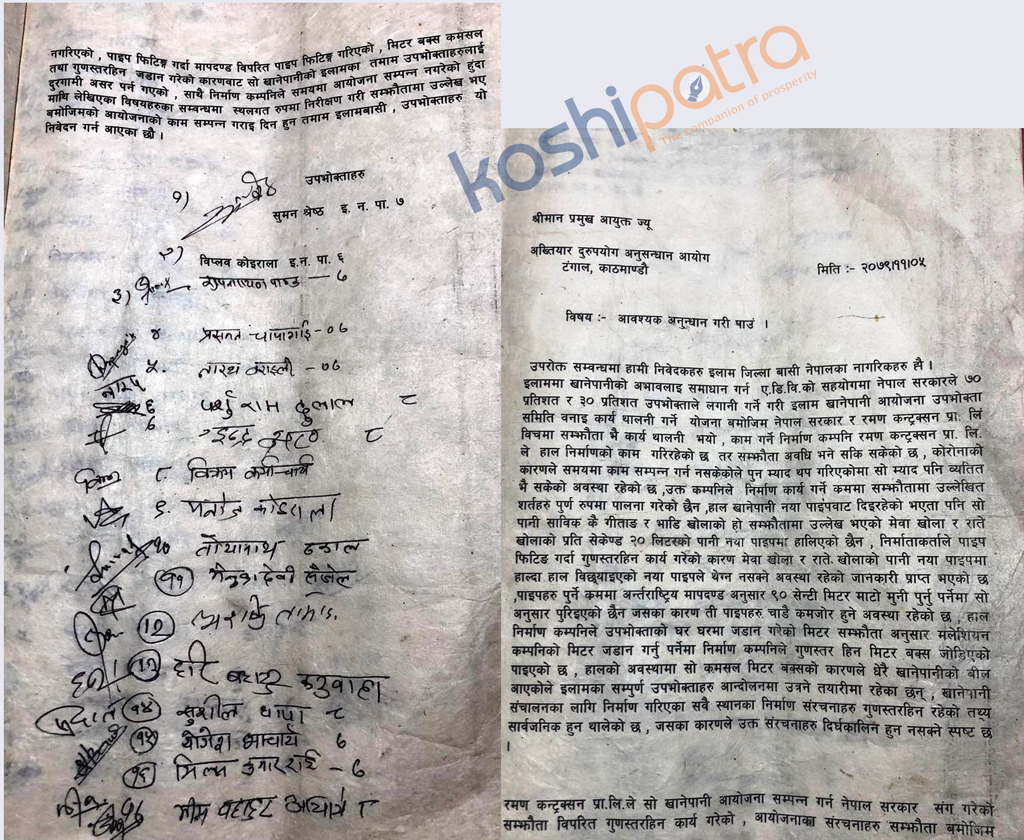 नगरिएको , पाइप फिटिङ्ग गर्दा मापदण्ड विपरित पाइप फिटिङ्ग गरिएको , मिटर बक्स कमसल
तथा गुणस्तरहिन जडान गरेको कारणवाट सो खानेपानीको इलामका तमाम उपभोक्ताहरुलाई
दुरगामी असर पर्न गएको , साथै निर्माण कम्पनिले समयमा आयोजना सम्पन्न नगरेको हुंदा
माथि लेखिएका विषयहरुका सम्वन्धमा स्थलगत रुपमा निरीक्षण गरी सम्झौतामा उल्लेख भए
बमोजिमको आयोजनाको काम सम्पन्न गराइ दिन हुन तमाम इलामबासी , उपभोक्ताहरु यो
निवेदन गर्न आएका छौ ।
उपभोक्ताहरु
१)
सुमन श्रेष्ठ इ. न. पा. ७
२)
विप्लव कोइराला इ.न. पा. ६
३) रुपनारायण - ७
४ प्रसान्त चापागाई - ०७
५. - ०७
६ पर्शु राम दुलाल ८
७ ८
८. विक्रम कर्माचार्य
९. मनोज कोइराला
१० तोयानाथ ढकाल
११
१२
१३ हरि बहादुर कटुवाल
१४ सुशील थापा ८
१५ योगेश आचार्य ७
१६ मिलन कुमार राई - ७
१७ भीम बहादुर आचार्य ८
koshipatra
The companion of prosperity
श्रीमान प्रमुख आयुक्त ज्यू
अख्तियार दुरुपयोग अनुसन्धान आयोग
टंगाल, काठमाण्डौ
मिति :- २०७९।११।०५
विषय :- आवश्यक अनुन्धान गरी पाउं ।
उपरोक्त सम्वन्धमा हामी निवेदकहरु इलाम जिल्ला बासी नेपालका नागरिकहरु हौ ।
इलाममा खानेपानीको अभावलाइ समाधान गर्न ए.डि.वि.को सहयोगमा नेपाल सरकारले ७०
प्रतिशत र ३० प्रतिशत उपभोक्ताले लगानी गर्ने गरी इलाम खानेपानी आयोजना उपभोक्ता
समिति वनाइ कार्य थालनी गर्ने योजना बमोजिम नेपाल सरकार र रमण कन्ट्रक्सन प्रा. लि
विचमा सम्झौता भै कार्य थालनी भयो , काम गर्ने निर्माण कम्पनि रमण कन्ट्रक्सन प्रा. लि.
ले हाल निर्माणको काम गरिरहेको छ तर सम्झौता अवधि भने सकि सकेको छ , कोरोनाको
कारणले समयमा काम सम्पन्न गर्न नसकेकोले पुन म्याद थप गरिएकोमा सो म्याद पनि व्यतित
भै सकेको अवस्था रहेको छ ,उक्त कम्पनिले निर्माण कार्य गर्ने कममा सम्झौतामा उल्लेखित
शर्तहरु पुर्ण रुपमा पालना गरेको छैन ,हाल खानेपानी नया पाइपवाट दिइरहेको भएता पनि सो
पानी साविक कै गीताङ र भाडि खोलाको हो सम्झौतामा उल्लेख भएको मेवा खोला र राते
खोलाको प्रति सेकेण्ड २० लिटरको पानी नया पाइपमा हालिएको छैन , निर्माताकर्ताले पाइप
फिटिङ गर्दा गुणस्तरहिन कार्य गरेको कारण मेवा खोला र राते खोलाको पानी नया पाइपमा
हाल्दा हाल विछ्याइएको नया पाइपले थेग्न नसक्ने अवस्था रहेको जानकारी प्राप्त भएको छ
,पाइपहरु पुर्ने कममा अर्न्तराष्ट्रिय मापदण्ड अनुसार ९० सेन्टी मिटर माटो मुनी पुर्नु पर्नेमा सो
अनुसार पुरिइएको छैन जसका कारण ती पाइपहरु चाडै कमजोर हुने अवस्था रहेको छ , हाल
निर्माण कम्पनिले उपभोक्ताको घर घरमा जडान गरेको मिटर सम्झौता अनुसार मलेशियन
कम्पनिको मिटर जडान गर्नु पर्नेमा निर्माण कम्पनिले गुणस्तर हिन मिटर बक्स जोडिएको
पाइएको छ , हालको अवस्थामा सो कमसल मिटर बक्सको कारणले धेरै खानेपानीको बील
आएकोले इलामका सम्पुर्ण उपभोक्ताहरु आन्दोलनमा उत्रने तयारीमा रहेका छन् , खानेपानी
संचालनका लागि निर्माण गरिएका सवै स्थानका निर्माण संरचनाहरु गुणस्तरहिन रहेको तथ्य
सार्वजनिक हुन थालेको छ , जसका कारणले उक्त संरचनाहरु दिर्घकालिन हुन नसक्ने स्पष्ट छ
।
रमण कन्ट्रक्सन प्रा.लि.ले सो खानेपानी आयोजना सम्पन्न गर्न नेपाल सरकार संग गरेको
सम्झौता विपरित गुणस्तरहिन कार्य गरेको , आयोजनाका संरचनाहरु सम्झौता बमोजिम